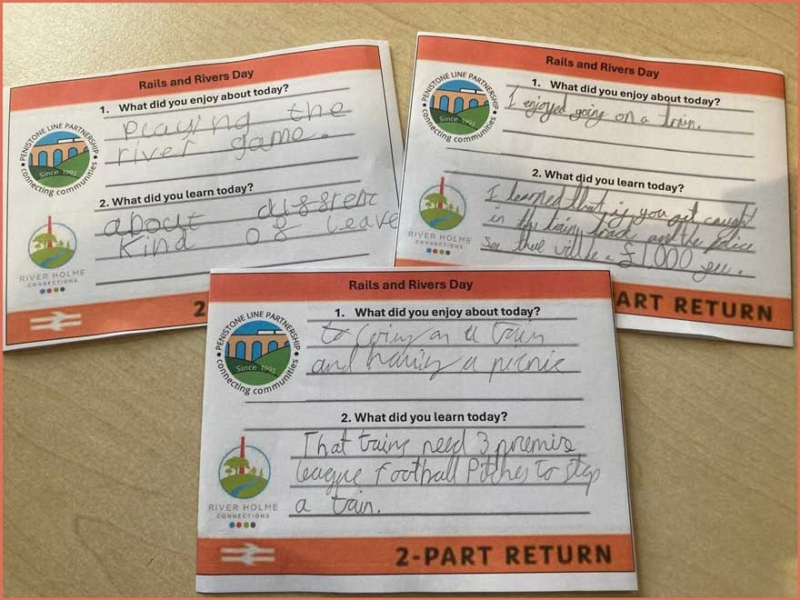 Rails and Rivers Day
1. What did you enjoy about today?
Playing the
river game.
2. What did you learn today?
about
Kind of leave
PENISTONE LINE PARTNERSHIP
Since 1993
connecting communities
RIVER HOLME
CONNECTIONS
2
Rails and Rivers Day
1. What did you enjoy about today?
I enjoyed going on a train.
2. What did you learn today?
I learned that if you get caught
in the train track and the police
see there will be a £1000
PENISTONE LINE PARTNERSHIP
Since 1993
connecting communities
RIVER HOLME
CONNECTIONS
ART RETURN
Rails and Rivers Day
1. What did you enjoy about today?
to going on a train
and having a picnic
2. What did you learn today?
That trains need 3
league Football Pitches to stop
a train.
PENISTONE LINE PARTNERSHIP
Since 1993
connecting communities
RIVER HOLME
CONNECTIONS
2-PART RETURN